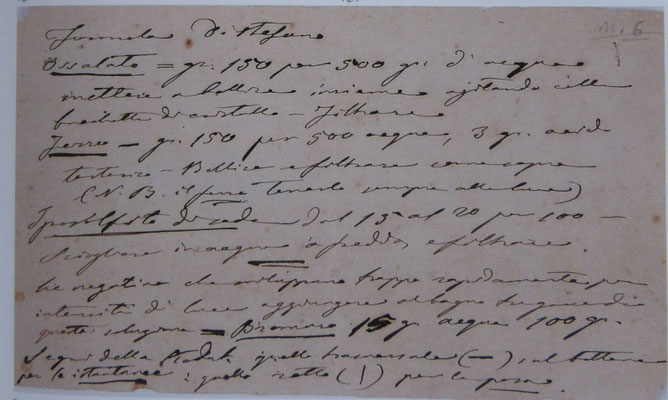 Formula Di Stefano
N. 6
Ossalato = gr. 150 per 500 gr. d'acqua
mettere a bollire insieme agitando colla
bacchetta di cristallo – Filtrare
Ferro – gr. 150 per 500 acqua, 3 gr. acido
tartarico – Bollire e filtrare come sopra
(N.B. il ferro tenerlo sempre alla luce)
Iposolfito di soda dal 15 al 20 per 100 –
Sciogliere in acqua a fredda, e filtrare.
Le negative che sviluppano troppo rapidamente per
intensità di luce aggiungere al bagno
questa soluzione = Bromuro 15 gr. acqua 100 gr.
Segni della quello trasversale (—) sul bottone
per le istantanee: quello retto (|) per la posa